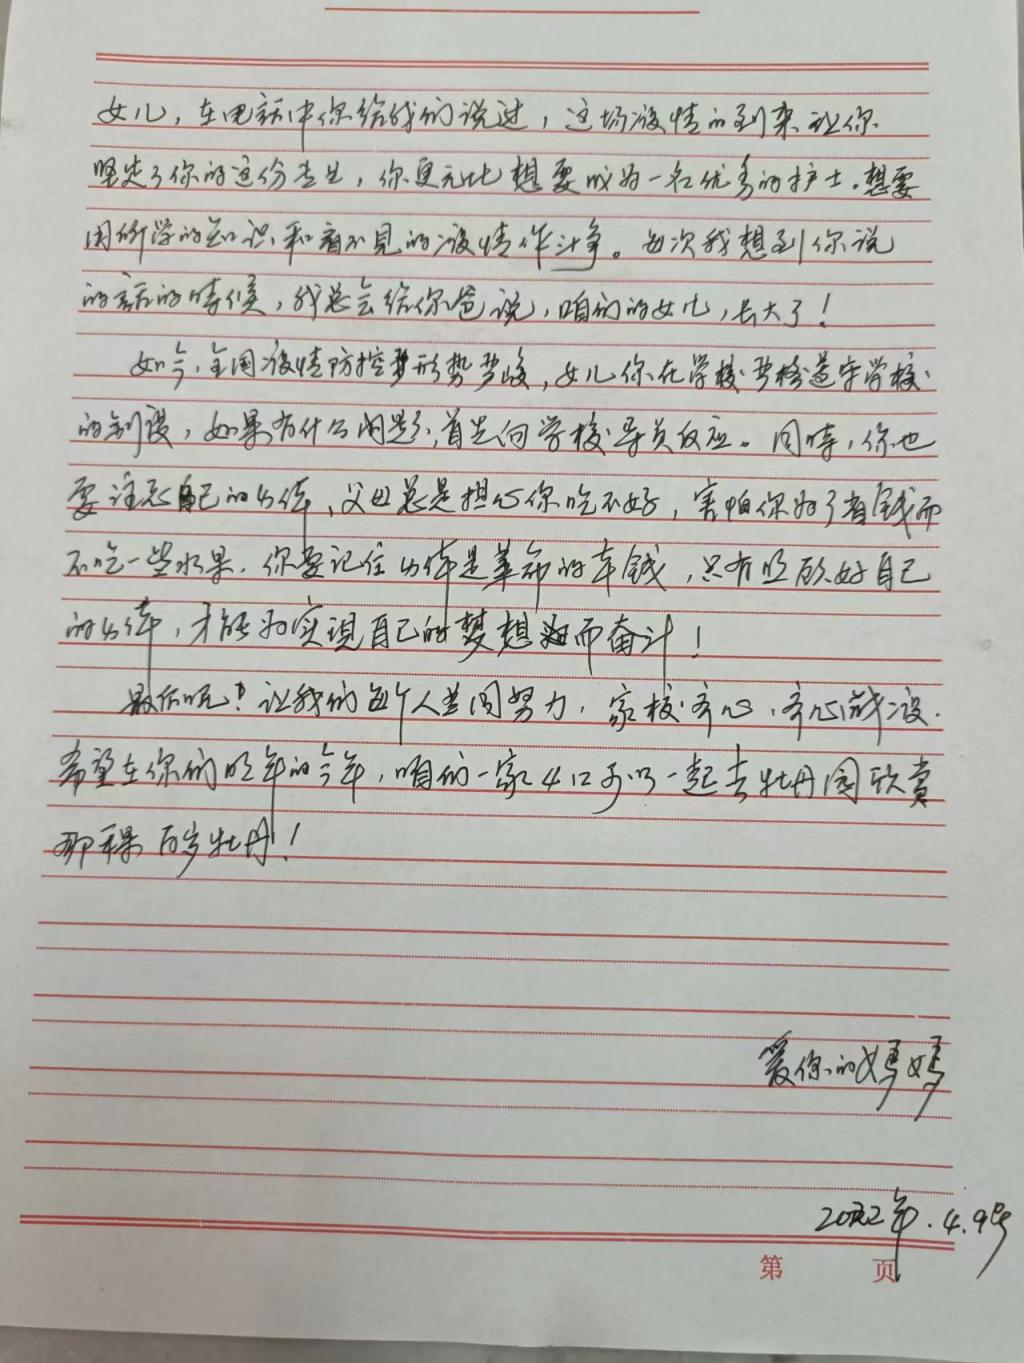 女儿，在电话中你给我们说过，这场疫情的到来让你
坚定了你的这份专业，你更无比想要成为一名优秀的护士。想要
用所学的知识和看不见的疫情作斗争。每次我想到你说
的话的时候，我总会给你爸说，咱们的女儿，长大了！
如今，全国疫情防控形势严峻，女儿你在学校要严格遵守学校
的制度，如果有什么问题，首先向学校导员反应。同时，你也
要注意自己的身体，父母总是担心你吃不好，害怕你为了省钱而
不吃一些水果。你要记住身体是革命的本钱，只有照顾好自己
的身体，才能为实现自己的梦想而奋斗！
最后呢！让我们每个人共同努力，家校齐心，齐心战疫.
希望在你们明年的今年，咱们一家4口可以一起去牡丹园欣赏
那棵百岁牡丹！
爱你的妈妈
2022年.4.9号
第 页